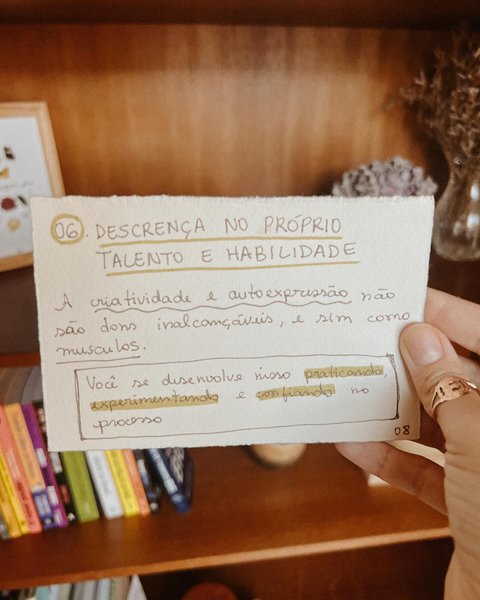 06. DESCRENÇA NO PRÓPRIO
TALENTO E HABILIDADE
A criatividade e autoexpressão não
são dons inalcançáveis, e sim como
musculos.
Você se desenvolve nisso praticando,
experimentando e confiando no
processo
08